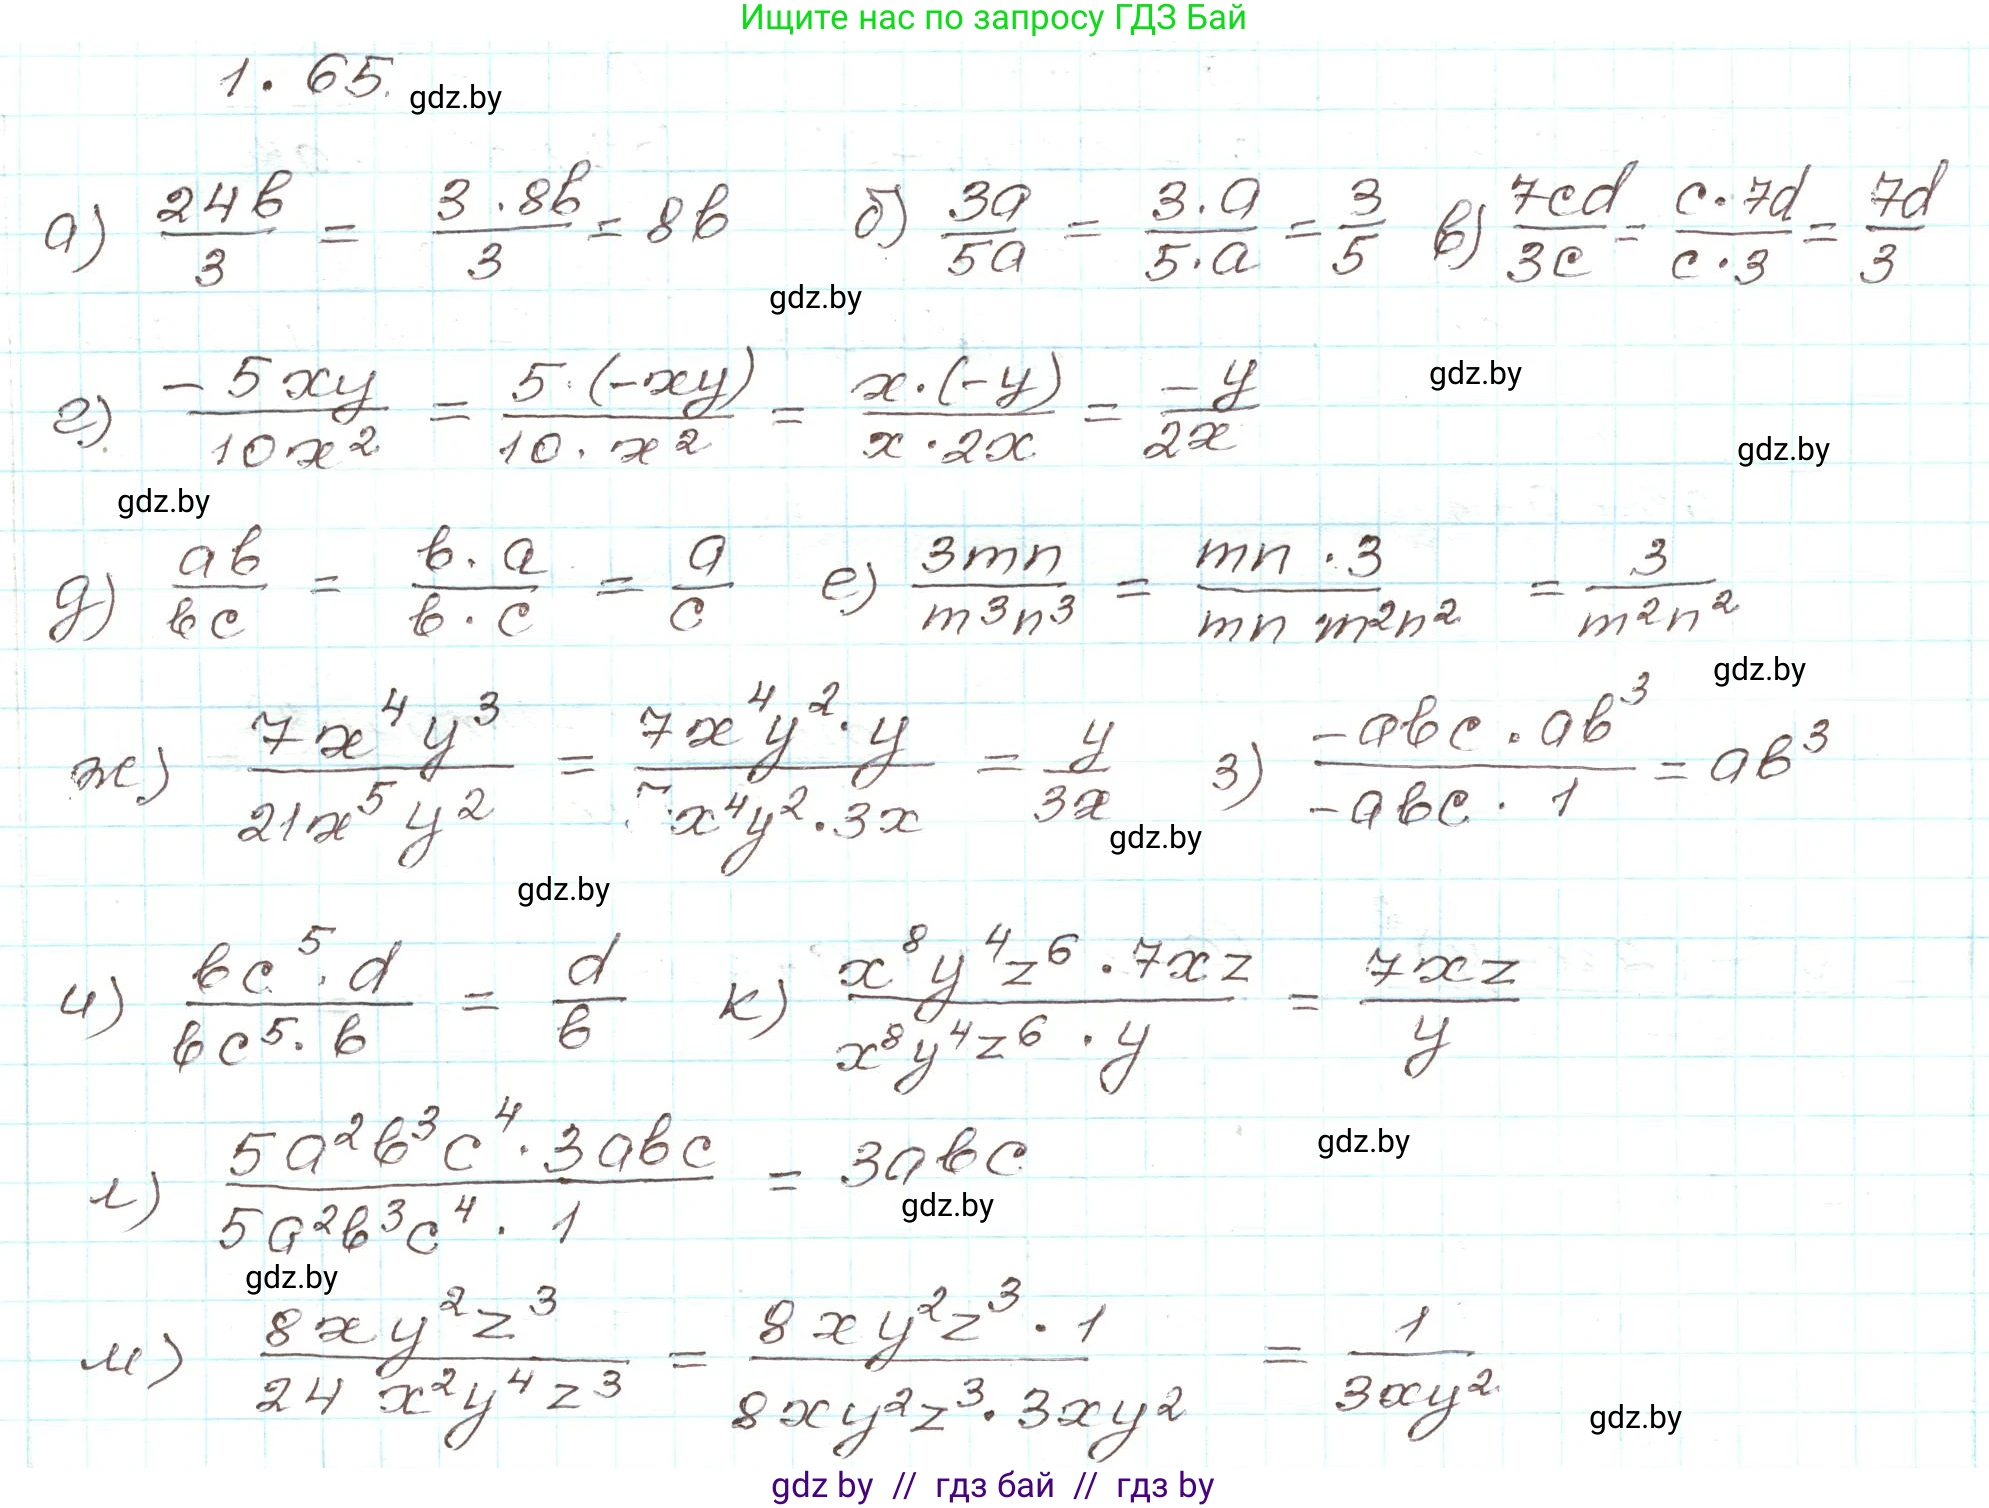 Ищите нас по запросу ГДЗ Бай
1. 65. gdz.by
а) 24b/3 = 3·8b/3 = 8b б) 3a/5a = 3·a/5·a = 3/5 в) 7cd/3c = c·7d/c·3 = 7d/3
gdz.by
г) -5xy/10x² = 5·(-xy)/10·x² = x·(-y)/x·2x = -y/2x gdz.by
gdz.by
gdz.by
д) ab/bc = b·a/b·c = a/c е) 3mn/m³n³ = mn·3/mn·m²n² = 3/m²n²
gdz.by
ж) 7x⁴y³/21x⁵y² = 7x⁴y²·y/7x⁴y²·3x = y/3x з) -abc·ab³/-abc·1 = ab³
gdz.by
gdz.by
и) bc⁵·d/bc⁵·b = d/b к) x⁸y⁴z⁶·7xz/x⁸y⁴z⁶·y = 7xz/y
gdz.by
л) 5a²b³c⁴·3abc/5a²b³c⁴·1 = 3abc
gdz.by
gdz.by
м) 8xy²z³/24x²y⁴z³ = 8xy²z³·1/8xy²z³·3xy² = 1/3xy²
gdz.by
gdz by // гдз бай // гдз by